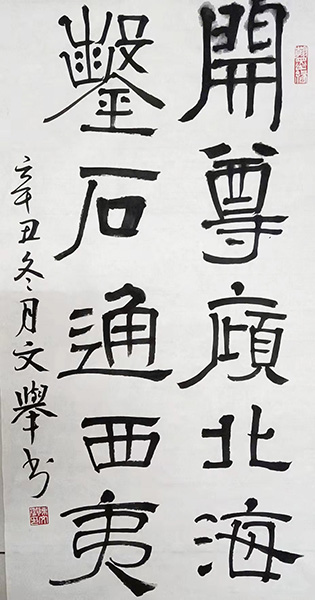 開尊頋北海
鑿石通西夷
辛丑冬月文舉书